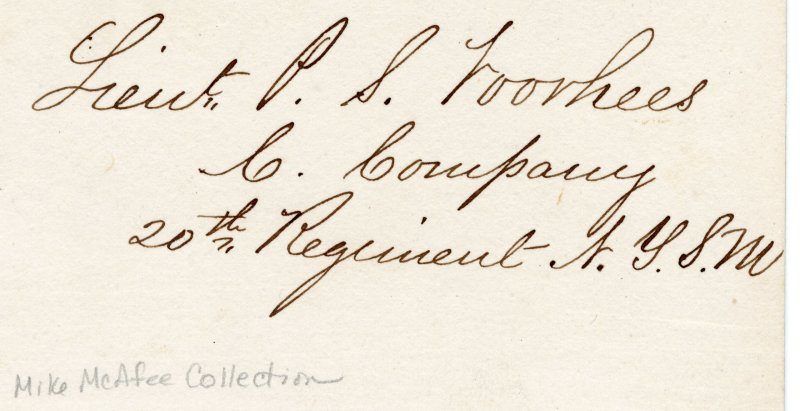 Lieut. P. S. Voorhees
C. Company
20th Regiment N.Y.S.M
Mike McAfee Collection